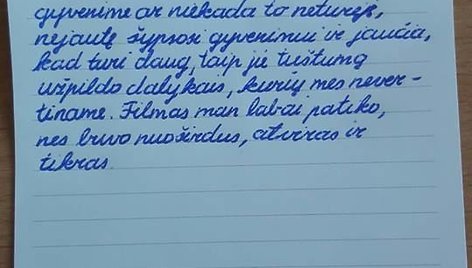 gyvenime ar niekada to neturėję,
nejautę šypsosi gyvenimui ir jaučia,
kad turi daug, taip jie tuštumą
užpildo dalykais, kurių mes never-
tiname. Filmas man labai patiko,
nes buvo nuoširdus, atviras ir
tikras.